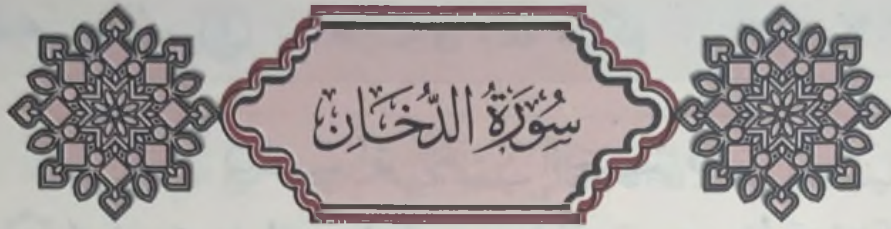 سُورَةُ الدُّخَانِ